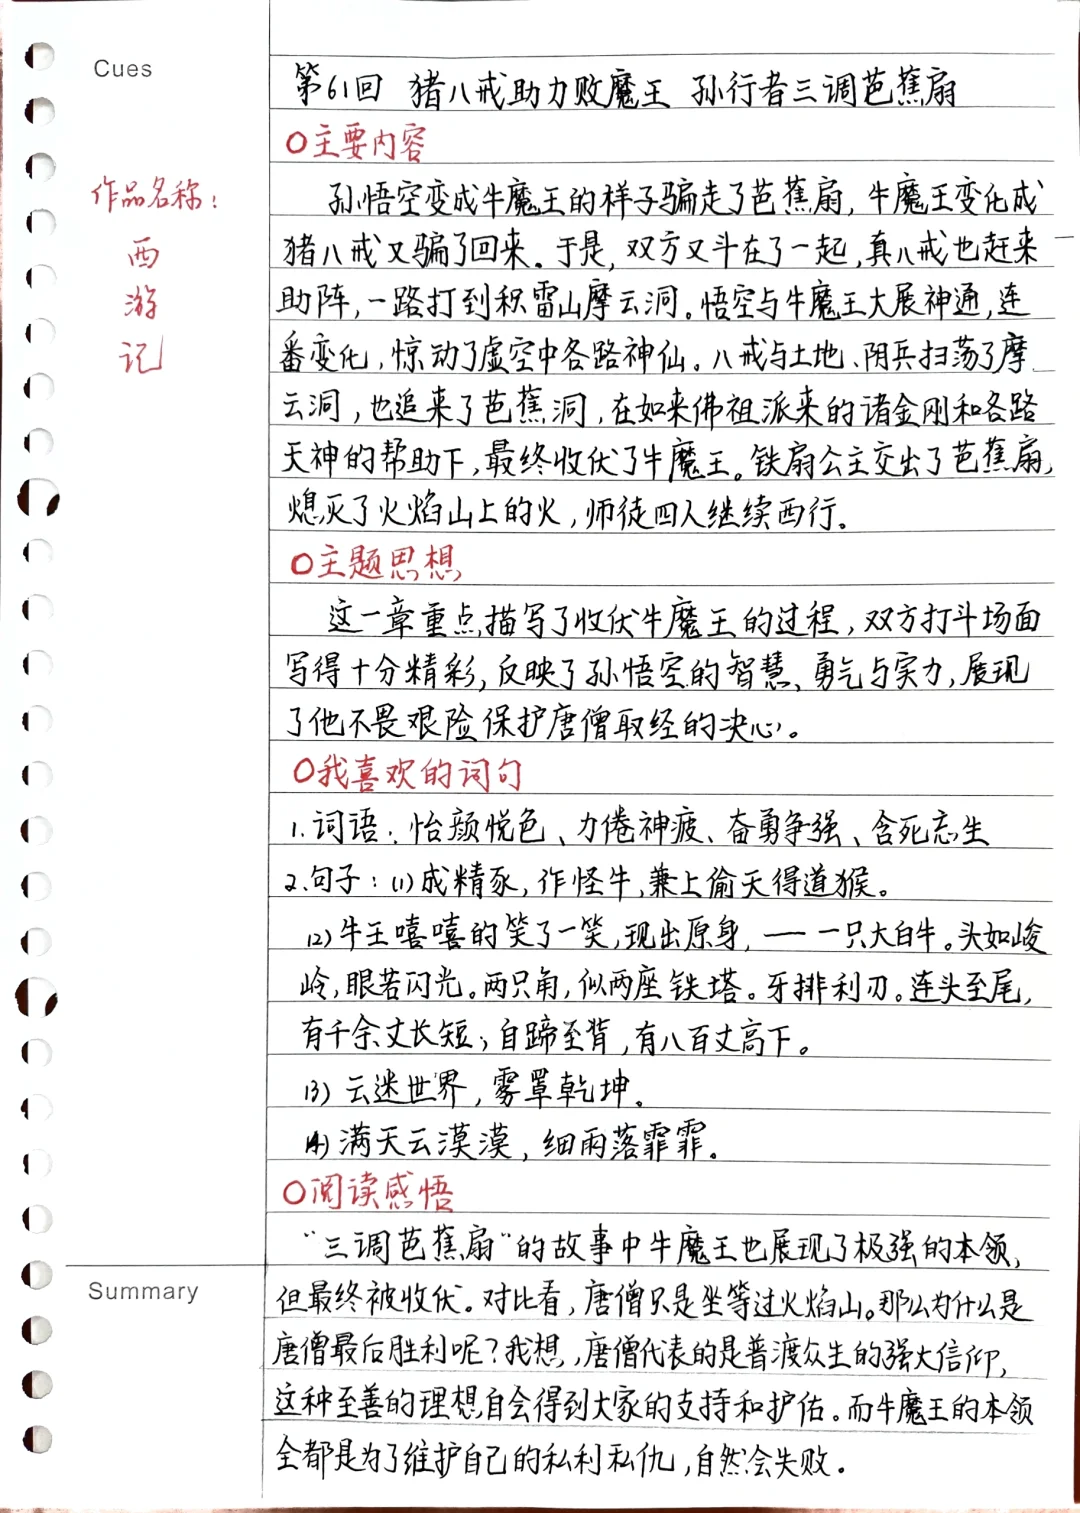 Cues
第61回 猪八戒助力败魔王 孙行者三调芭蕉扇
○主要内容
作品名称：
西
游
记
孙悟空变成牛魔王的样子骗走了芭蕉扇,牛魔王变化成
猪八戒又骗了回来。于是,双方又斗在了一起,真八戒也赶来
助阵,一路打到积雷山摩云洞。悟空与牛魔王大展神通,连
番变化,惊动了虚空中各路神仙。八戒与土地、阴兵扫荡了摩
云洞,也追来了芭蕉洞,在如来佛祖派来的诸金刚和各路
天神的帮助下,最终收伏了牛魔王。铁扇公主交出了芭蕉扇,
熄灭了火焰山上的火,师徒四人继续西行。
○主题思想
这一章重点描写了收伏牛魔王的过程,双方打斗场面
写得十分精彩,反映了孙悟空的智慧、勇气与实力,展现
了他不畏艰险保护唐僧取经的决心。
○我喜欢的词句
1.词语:怡颜悦色、力倦神疲、奋勇争强、含死忘生
2.句子:(1)成精豕,作怪牛,兼上偷天得道猴。
(2)牛王嘻嘻的笑了一笑,现出原身,——一只大白牛。头如峻
岭,眼若闪光。两只角,似两座铁塔。牙排利刃。连头至尾,
有千余丈长短;自蹄至背,有八百丈高下。
(3)云迷世界,雾罩乾坤。
(4)满天云漠漠,细雨落霏霏。
○阅读感悟
"三调芭蕉扇"的故事中牛魔王也展现了极强的本领,
Summary
但最终被收伏。对比看,唐僧只是坐等过火焰山。那么为什么是
唐僧最后胜利呢?我想,唐僧代表的是普渡众生的强大信仰,
这种至善的理想自会得到大家的支持和护佑。而牛魔王的本领
全都是为了维护自己的私利私仇,自然会失败。